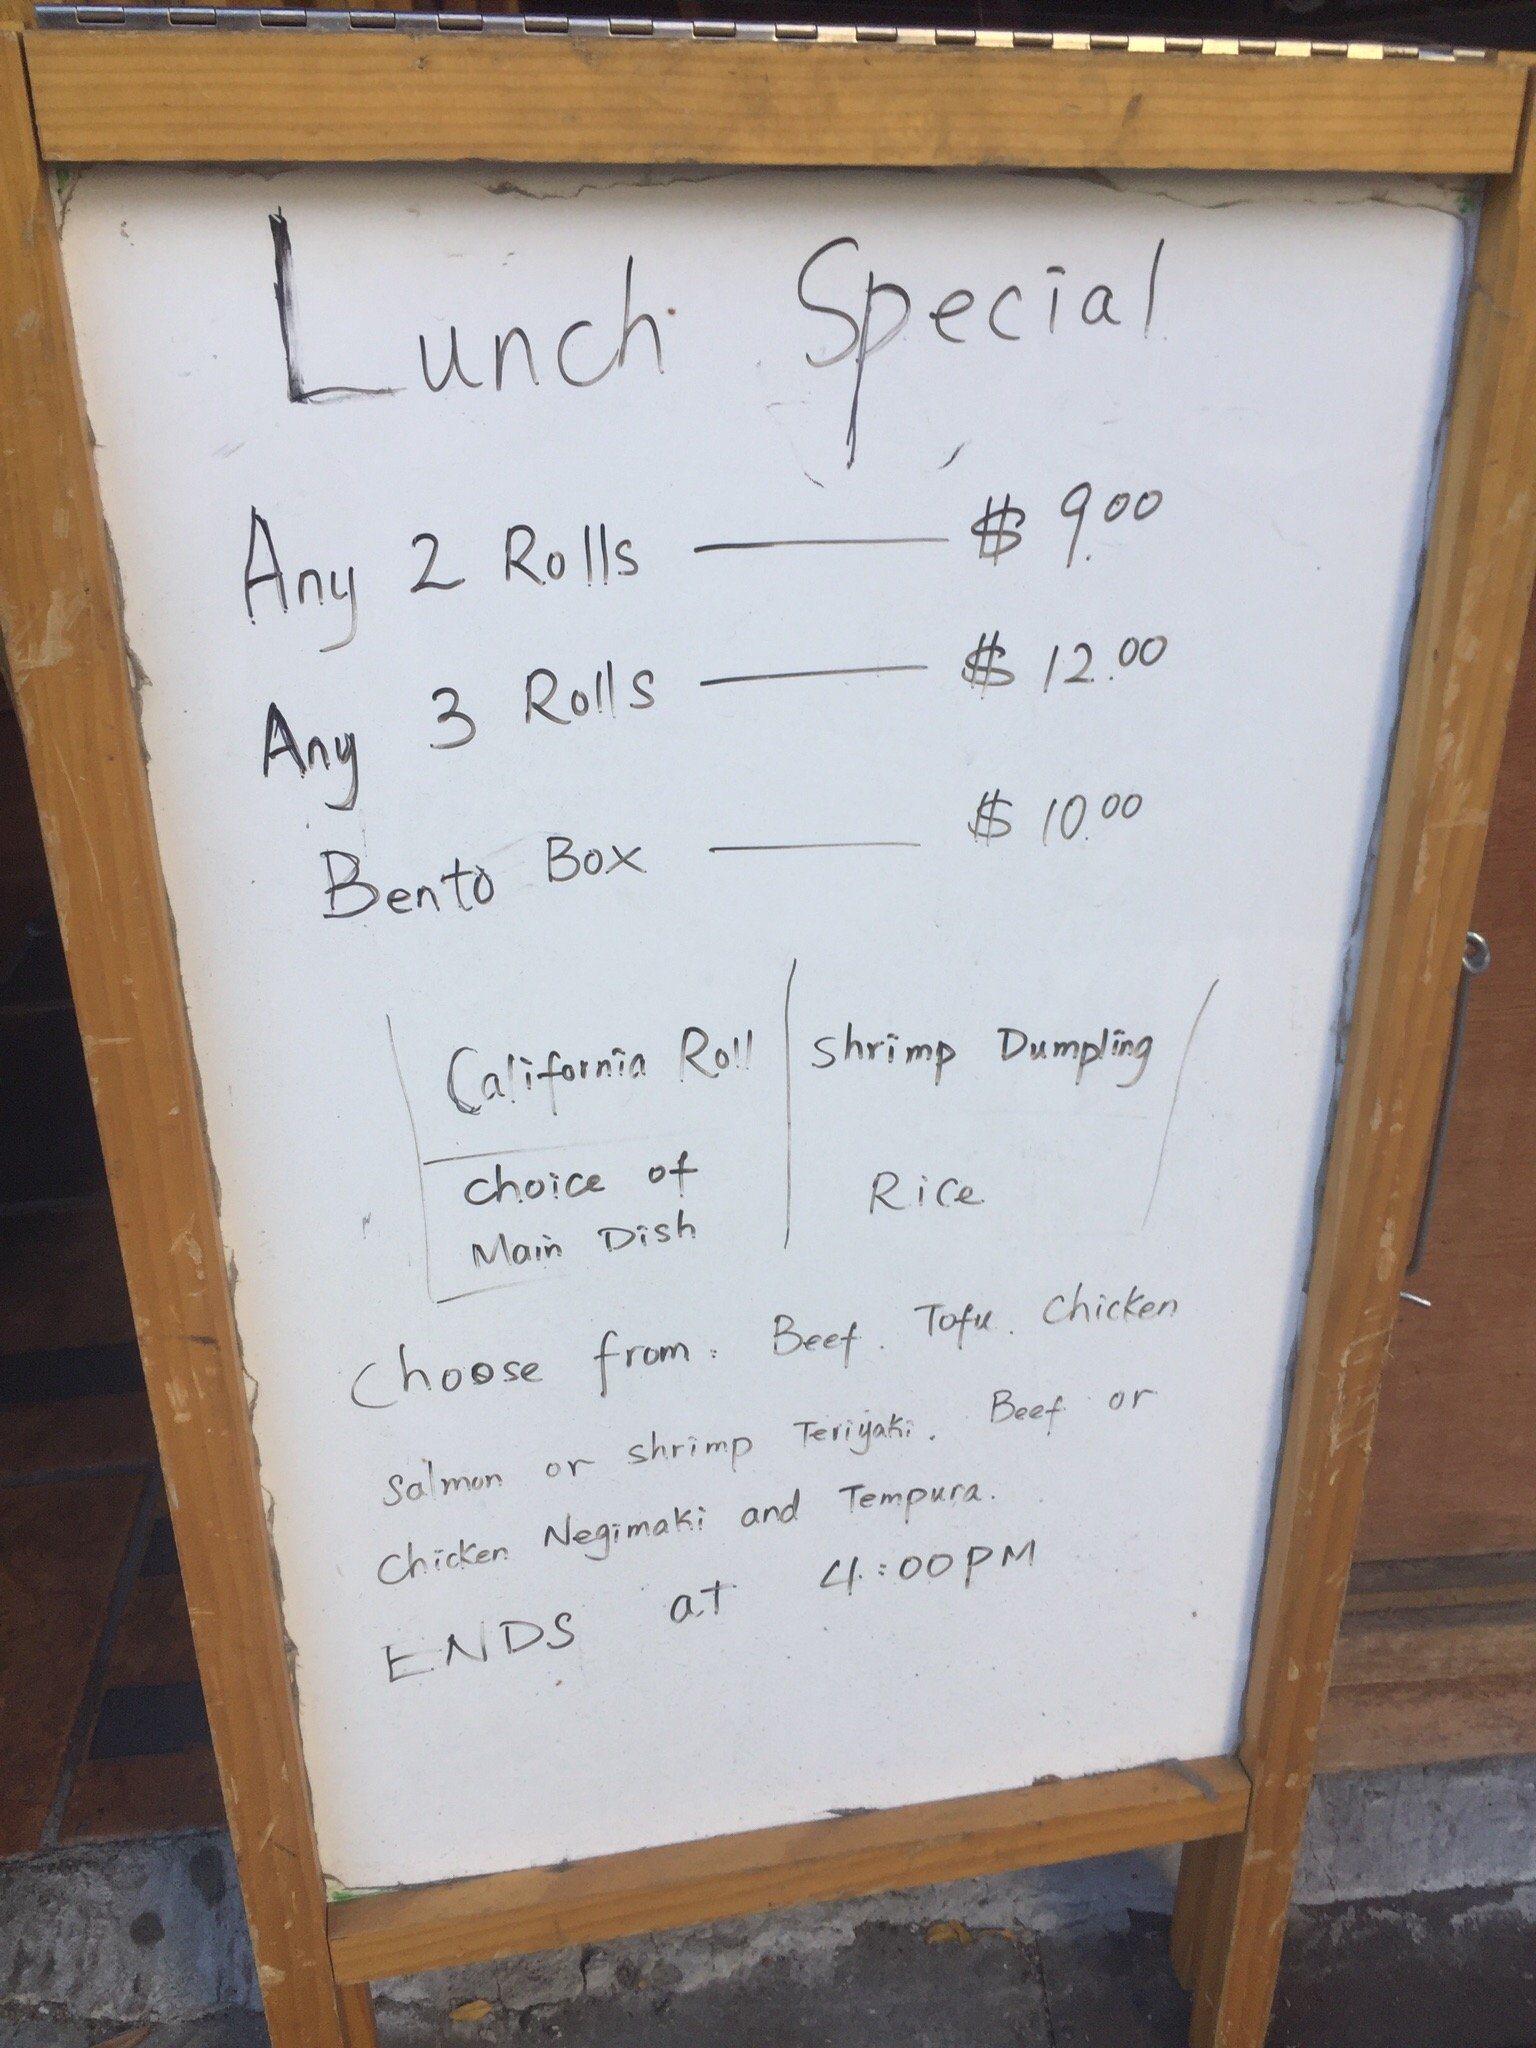 Lunch Special
Any 2 Rolls — $ 9.00
Any 3 Rolls — $ 12.00
Bento Box — $ 10.00
California Roll | Shrimp Dumpling
Choice of
Main Dish | Rice
Choose from: Beef. Tofu. Chicken
Salmon or shrimp Teriyaki. Beef or
Chicken Negimaki and Tempura.
ENDS at 4:00PM